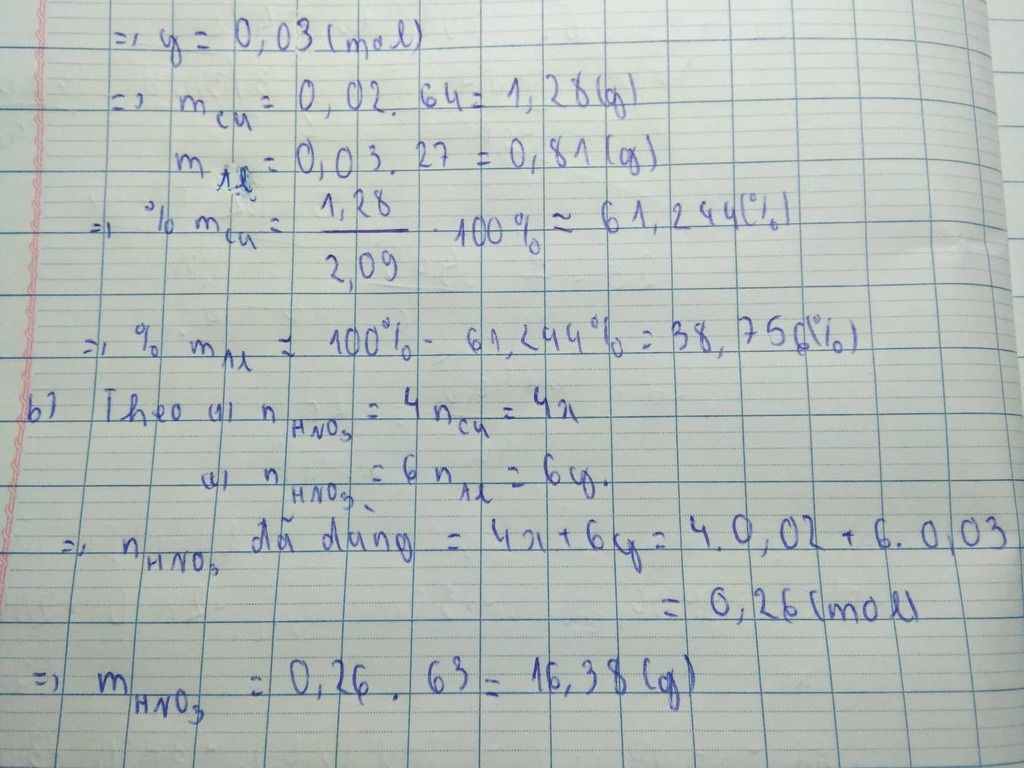 => y = 0,03 (mol)
=> m Cu = 0,02 . 64 = 1,28 (g)
m Al = 0,03 . 27 = 0,81 (g)
=> % m Cu = 1,28 / 2,09 . 100% ≈ 61,244 (%)
=> % m Al = 100% - 61,244% = 38,756 (%)
b) Theo (1) n HNO3 = 4 n Cu = 4x
(2) n HNO3 = 6 n Al = 6y.
=> n HNO3 đã dùng = 4x + 6y = 4. 0,02 + 6. 0,03
= 0,26 (mol)
=> m HNO3 = 0,26 . 63 = 16,38 (g)